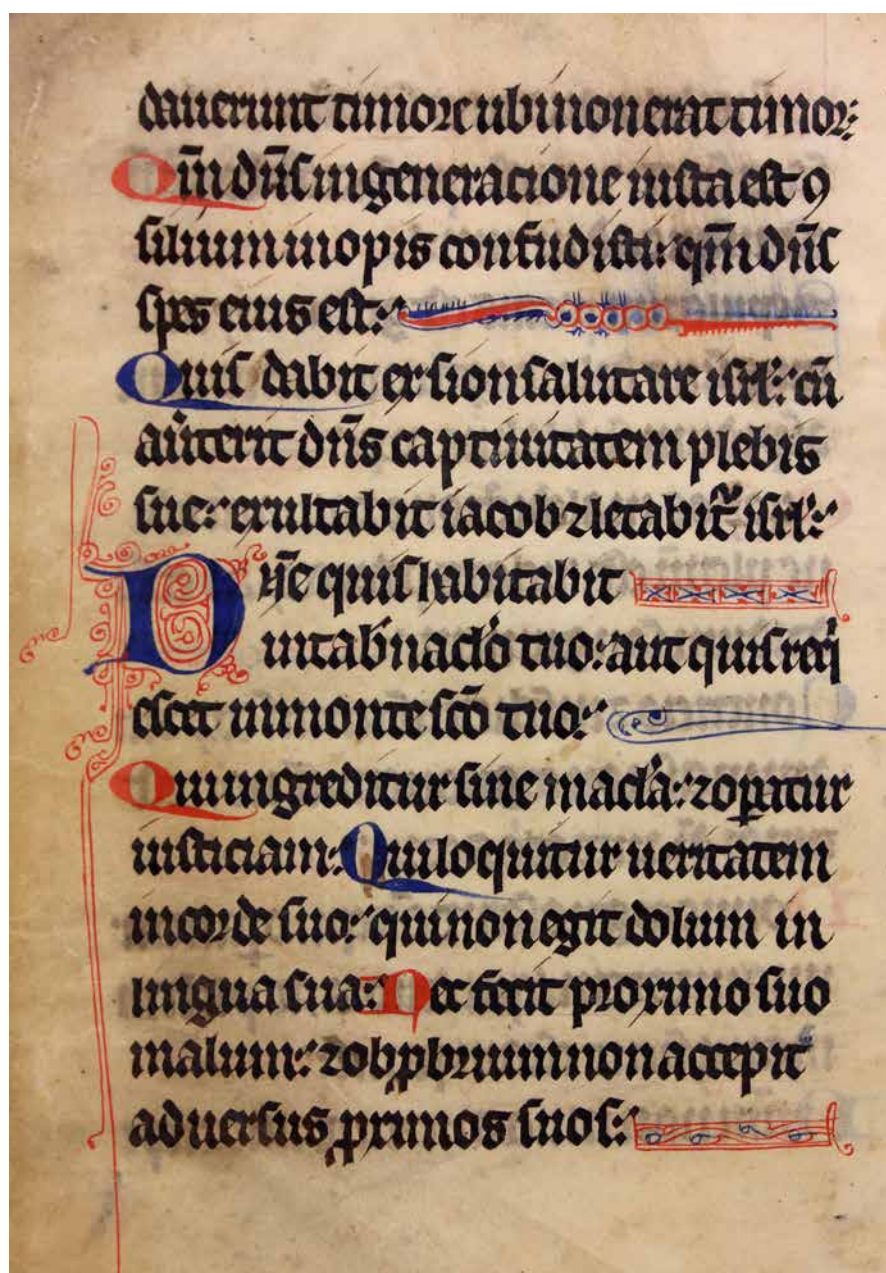 dauerunt timore ubi non erat timor:
Qm̄ dn̄s in generacione iusta est ꝯ
silium inopis confudisti: qm̄ dn̄s
spes eius est:
Quis dabit ex sion salutare isrl̄: cū
aũterit dn̄s captiuitatem plebis
sue: exultabit iacob ⁊ letabit᷑ isrl̄:
Dn̄e quis habitabit
in tab̾naclo̾ tuo: aut quis req̇i
escet in monte sc̄o tuo:
Qui ingreditur sine macl̾a: ⁊ oꝑatur
iusticiam: Qui loquitur ueritatem
in corde suo: qui non egit dolum in
lingua sua: Nec fecit proximo suo
malum: ⁊ obꝓbrium non accepit
aduersus ꝓximos suos: